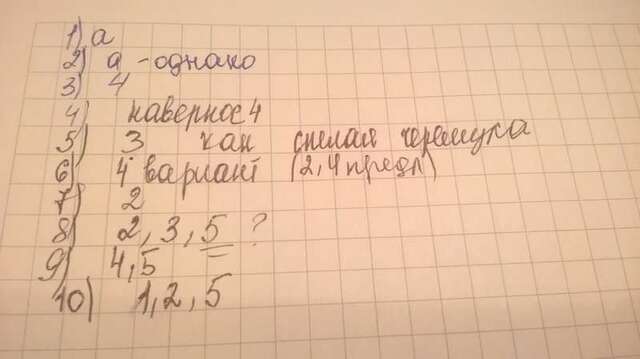 1) а
2) а - однако
3) 4
4) наверное 4
5) 3 как спелая черемука
6) 4 вариант (2, 4 предл)
7) 2
8) 2, 3, 5 ?
9) 4, 5
10) 1, 2, 5